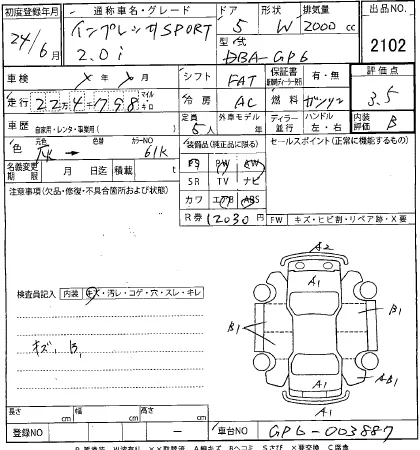 初度登録年月 通称車名・グレード ドア 形状 排気量 出品NO.
24/6月 インプレッサSPORT 2.0i 5 W 2000cc 2102
型式 DBA-GP6
車検 ×年×月 シフト FAT 保証書 有・無 評価点
走行 22万4千798 マイル キロ 冷房 AC 燃料 ガソリン 3.5
車歴 自家用・レンタ・事業用( ) 定員 5人 外車モデル 年 ディーラー 並行 ハンドル 左・右 内装評価 B
色 元色 → 色替 カラーNO 61K 装備品(純正品に限る) セールスポイント(正常に機能するもの)
PS PW AW
名義変更期限 月 日迄 積載 t SR TV ナビ
注意事項(欠品・修復・不具合箇所および状態) カワ エアB ABS
R券 12030円 FW キズ・ヒビ割・リペア跡・X要
A2
A1
検査員記入 内装 キズ・汚レ・コゲ・穴・スレ・キレ
B1 B1
キズ、B1
A1 AB1
A1
長さ cm 幅 cm 高さ cm
登録NO ー 車台NO GP6-003887